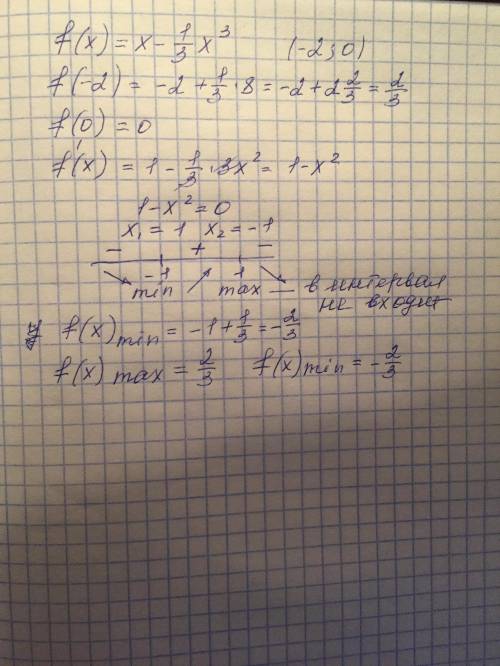 f(x) = x - 1/3 x³ (-2; 0)
f(-2) = -2 + 1/3 · 8 = -2 + 2 2/3 = 2/3
f(0) = 0
f'(x) = 1 - 1/3 · 3x² = 1 - x²
1 - x² = 0
x₁ = 1 x₂ = -1
- + -
-1 1
min max — в интервал
не входит
f(x) min = -1 + 1/3 = -2/3
f(x) max = 2/3 f(x) min = -2/3